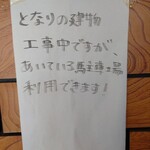 となりの建物
工事中ですが、
あいている駐車場
利用できます!